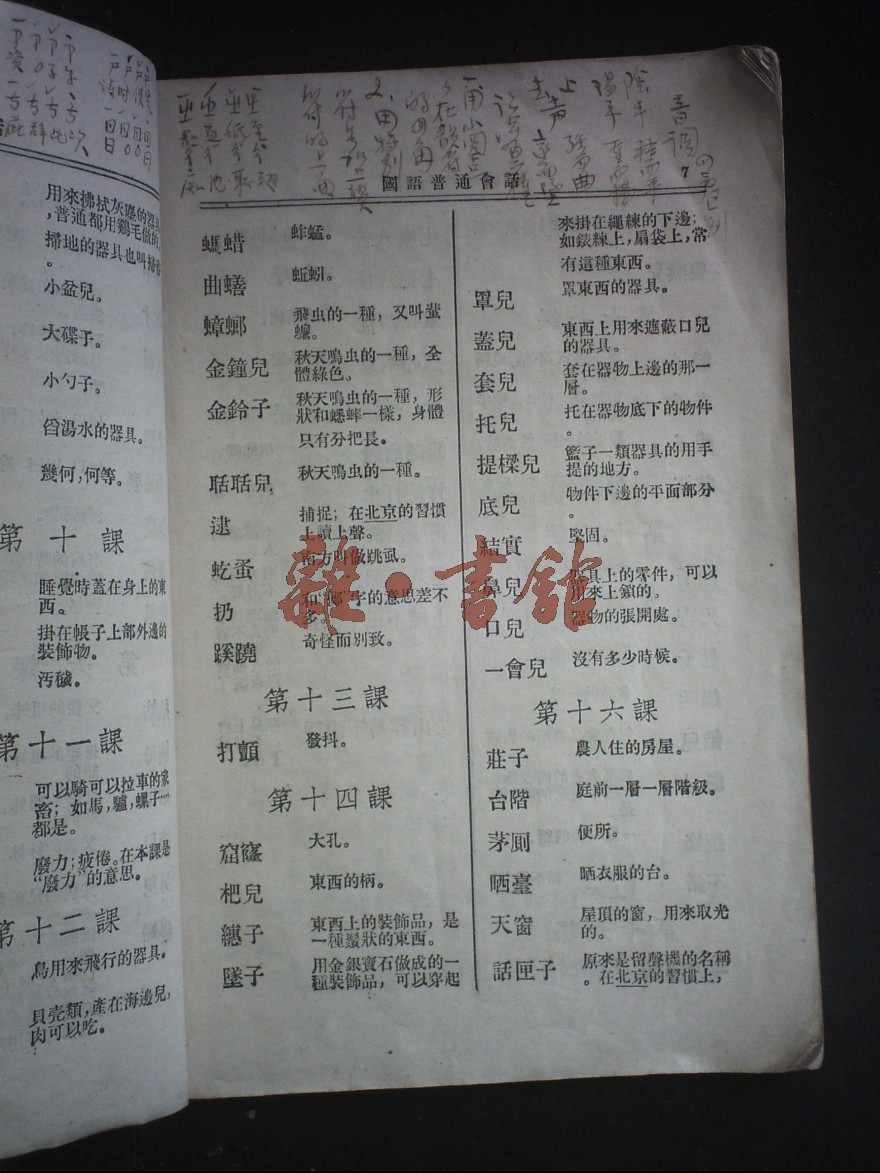 用來拂拭灰塵的器具
,普通都用鷄毛做的。
掃地的器具也叫掃帚
。
小盆兒。
大碟子。
小勺子。
舀湯水的器具。
幾何,何等。
第十課
睡覺時蓋在身上的東
西。
掛在帳子上部外邊的
裝飾物。
汚穢。
第十一課
可以騎可以拉車的家
畜;如馬,驢,螺子…
都是。
廢力;疲倦。在本課是
“廢力”的意思。
第十二課
鳥用來飛行的器具。
貝壳類,產在海邊兒,
肉可以吃。
國語普通會話 7
螞蜡 蚱蜢。
曲蟮 蚯蚓。
蟑螂 飛虫的一種,又叫蜚
蠊。
金鐘兒 秋天鳴虫的一種,全
體綠色。
金鈴子 秋天鳴虫的一種,形
狀和蟋蟀一樣,身體
只有分把長。
聒聒兒 秋天鳴虫的一種。
逮 捕捉;在北京的習慣
上讀上聲。
虼蚤 南方叫做跳虱。
扔 和“擲”字的意思差不
多。
蹊蹺 奇怪而別致。
第十三課
打顫 發抖。
第十四課
窟窿 大孔。
杷兒 東西的柄。
繐子 東西上的裝飾品,是
一種鬚狀的東西。
墜子 用金銀寶石做成的一
種裝飾品,可以穿起
來掛在繩練的下邊;
如錶練上,扇袋上,常
有這種東西。
罩兒 罩東西的器具。
蓋兒 東西上用來遮蔽口兒
的器具。
套兒 套在器物上邊的那一
層。
托兒 托在器物底下的物件
。
提樑兒 籃子一類器具的用手
提的地方。
底兒 物件下邊的平面部分
。
結實 堅固。
鼻兒 器具上的零件,可以
用來上鎖的。
口兒 器物的張開處。
一會兒 沒有多少時候。
第十六課
莊子 農人住的房屋。
台階 庭前一層一層階級。
茅厠 便所。
晒臺 晒衣服的台。
天窗 屋頂的窗,用來取光
的。
話匣子 原來是留聲機的名稱
。在北京的習慣上,
音調
陰平
陽平
上
去声
雜·書館